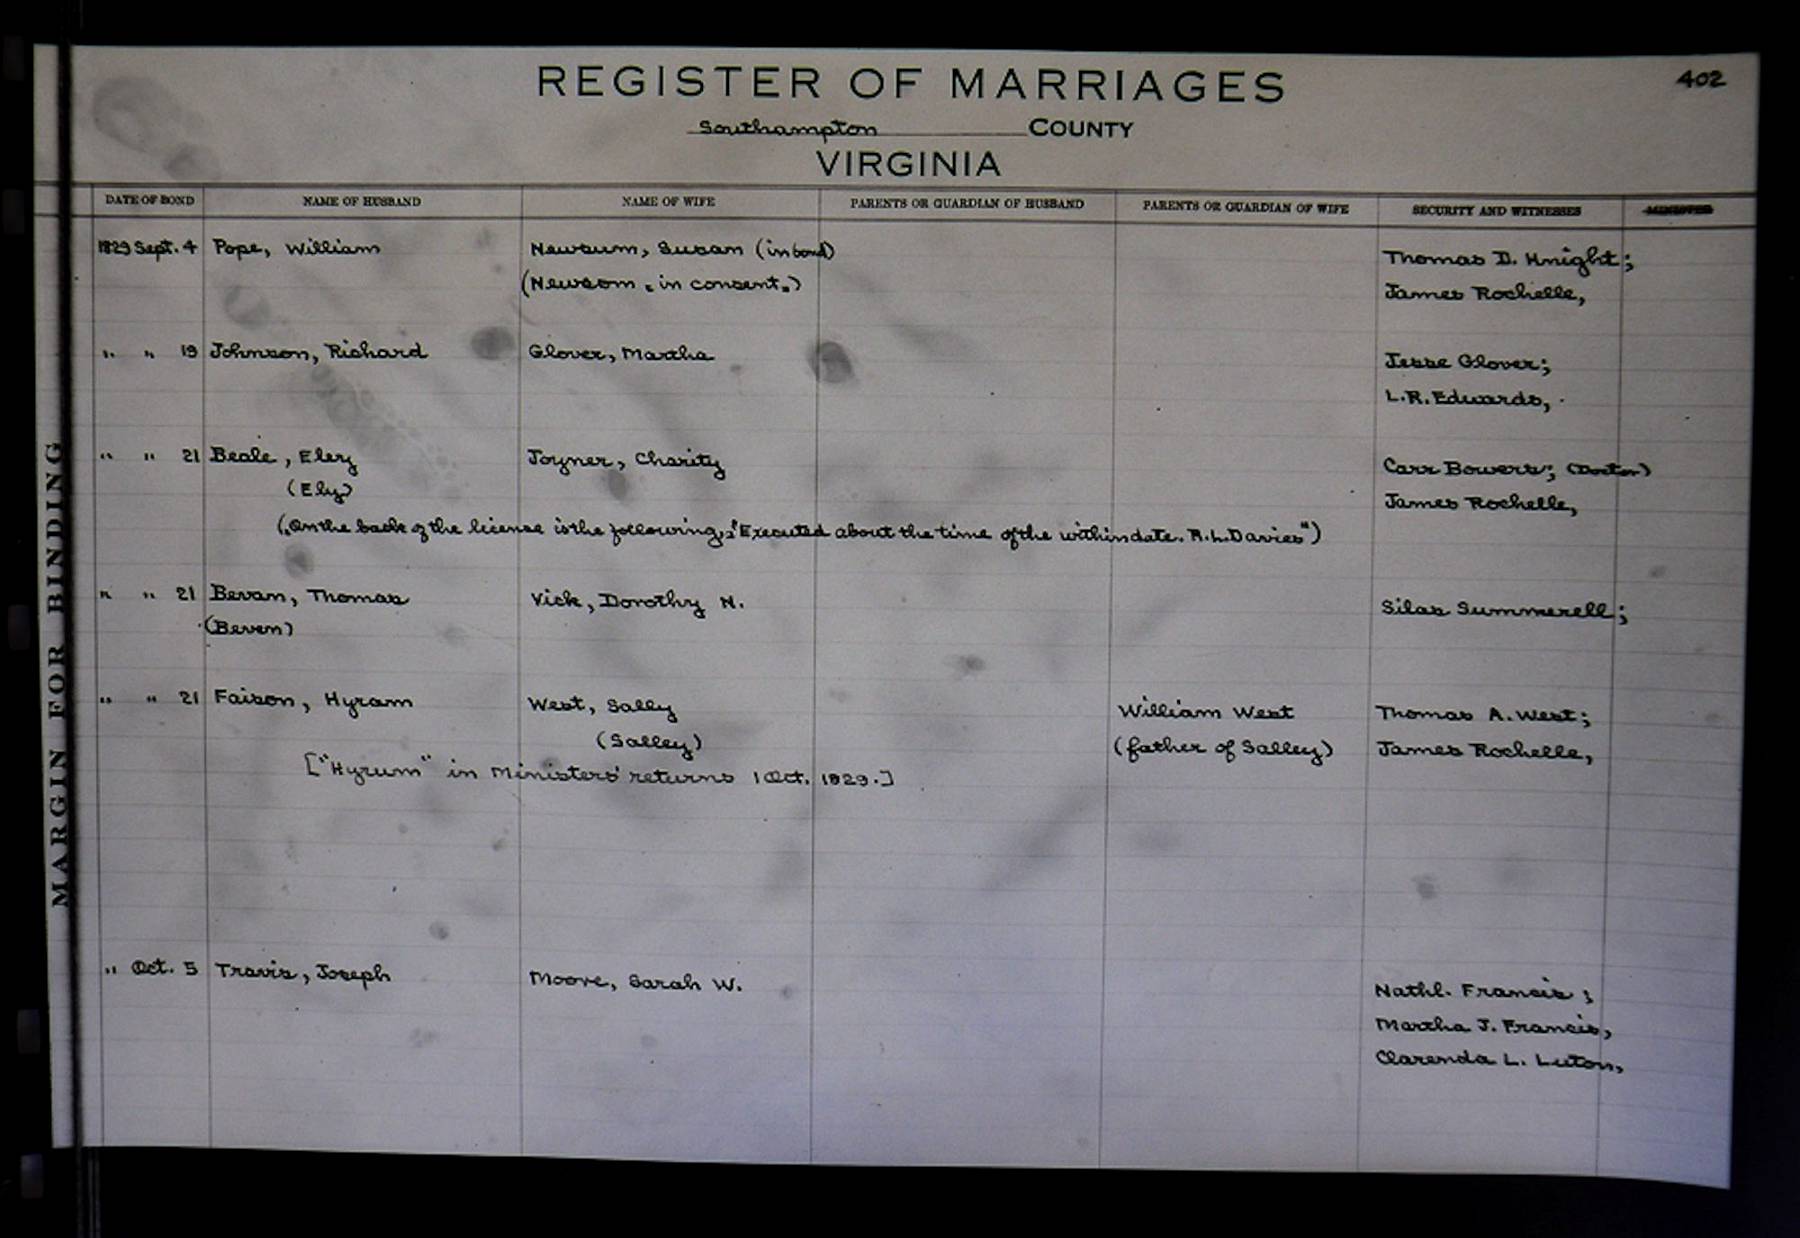 402
REGISTER OF MARRIAGES
Southampton COUNTY
VIRGINIA
DATE OF BOND NAME OF HUSBAND NAME OF WIFE PARENTS OR GUARDIAN OF HUSBAND PARENTS OR GUARDIAN OF WIFE SECURITY AND WITNESSES MINISTER
1829 Sept. 4 Pope, William Newsum, Susan (in bond) Thomas D. Knight;
(Newsom " in consent.") James Rochelle,
" " 19 Johnson, Richard Glover, Martha Jesse Glover;
L.R. Edwards,
" " 21 Beale, Eley Joyner, Charity Carr Bowers; (Doctor)
(Ely) James Rochelle,
(On the back of the license is the following, "Executed about the time of the within date. R.L. Davies")
" " 21 Bevan, Thomas Vick, Dorothy N. Silas Summerell;
(Beven)
" " 21 Faison, Hyram West, Sally William West Thomas A. West;
(Salley) (father of Salley) James Rochelle,
["Hyrum" in Ministers' returns 1 Oct. 1829.]
" Oct. 5 Travis, Joseph Moore, Sarah W. Nathl. Francis;
Martha J. Francis,
Clarenda L. Luton,
MARGIN FOR BINDING